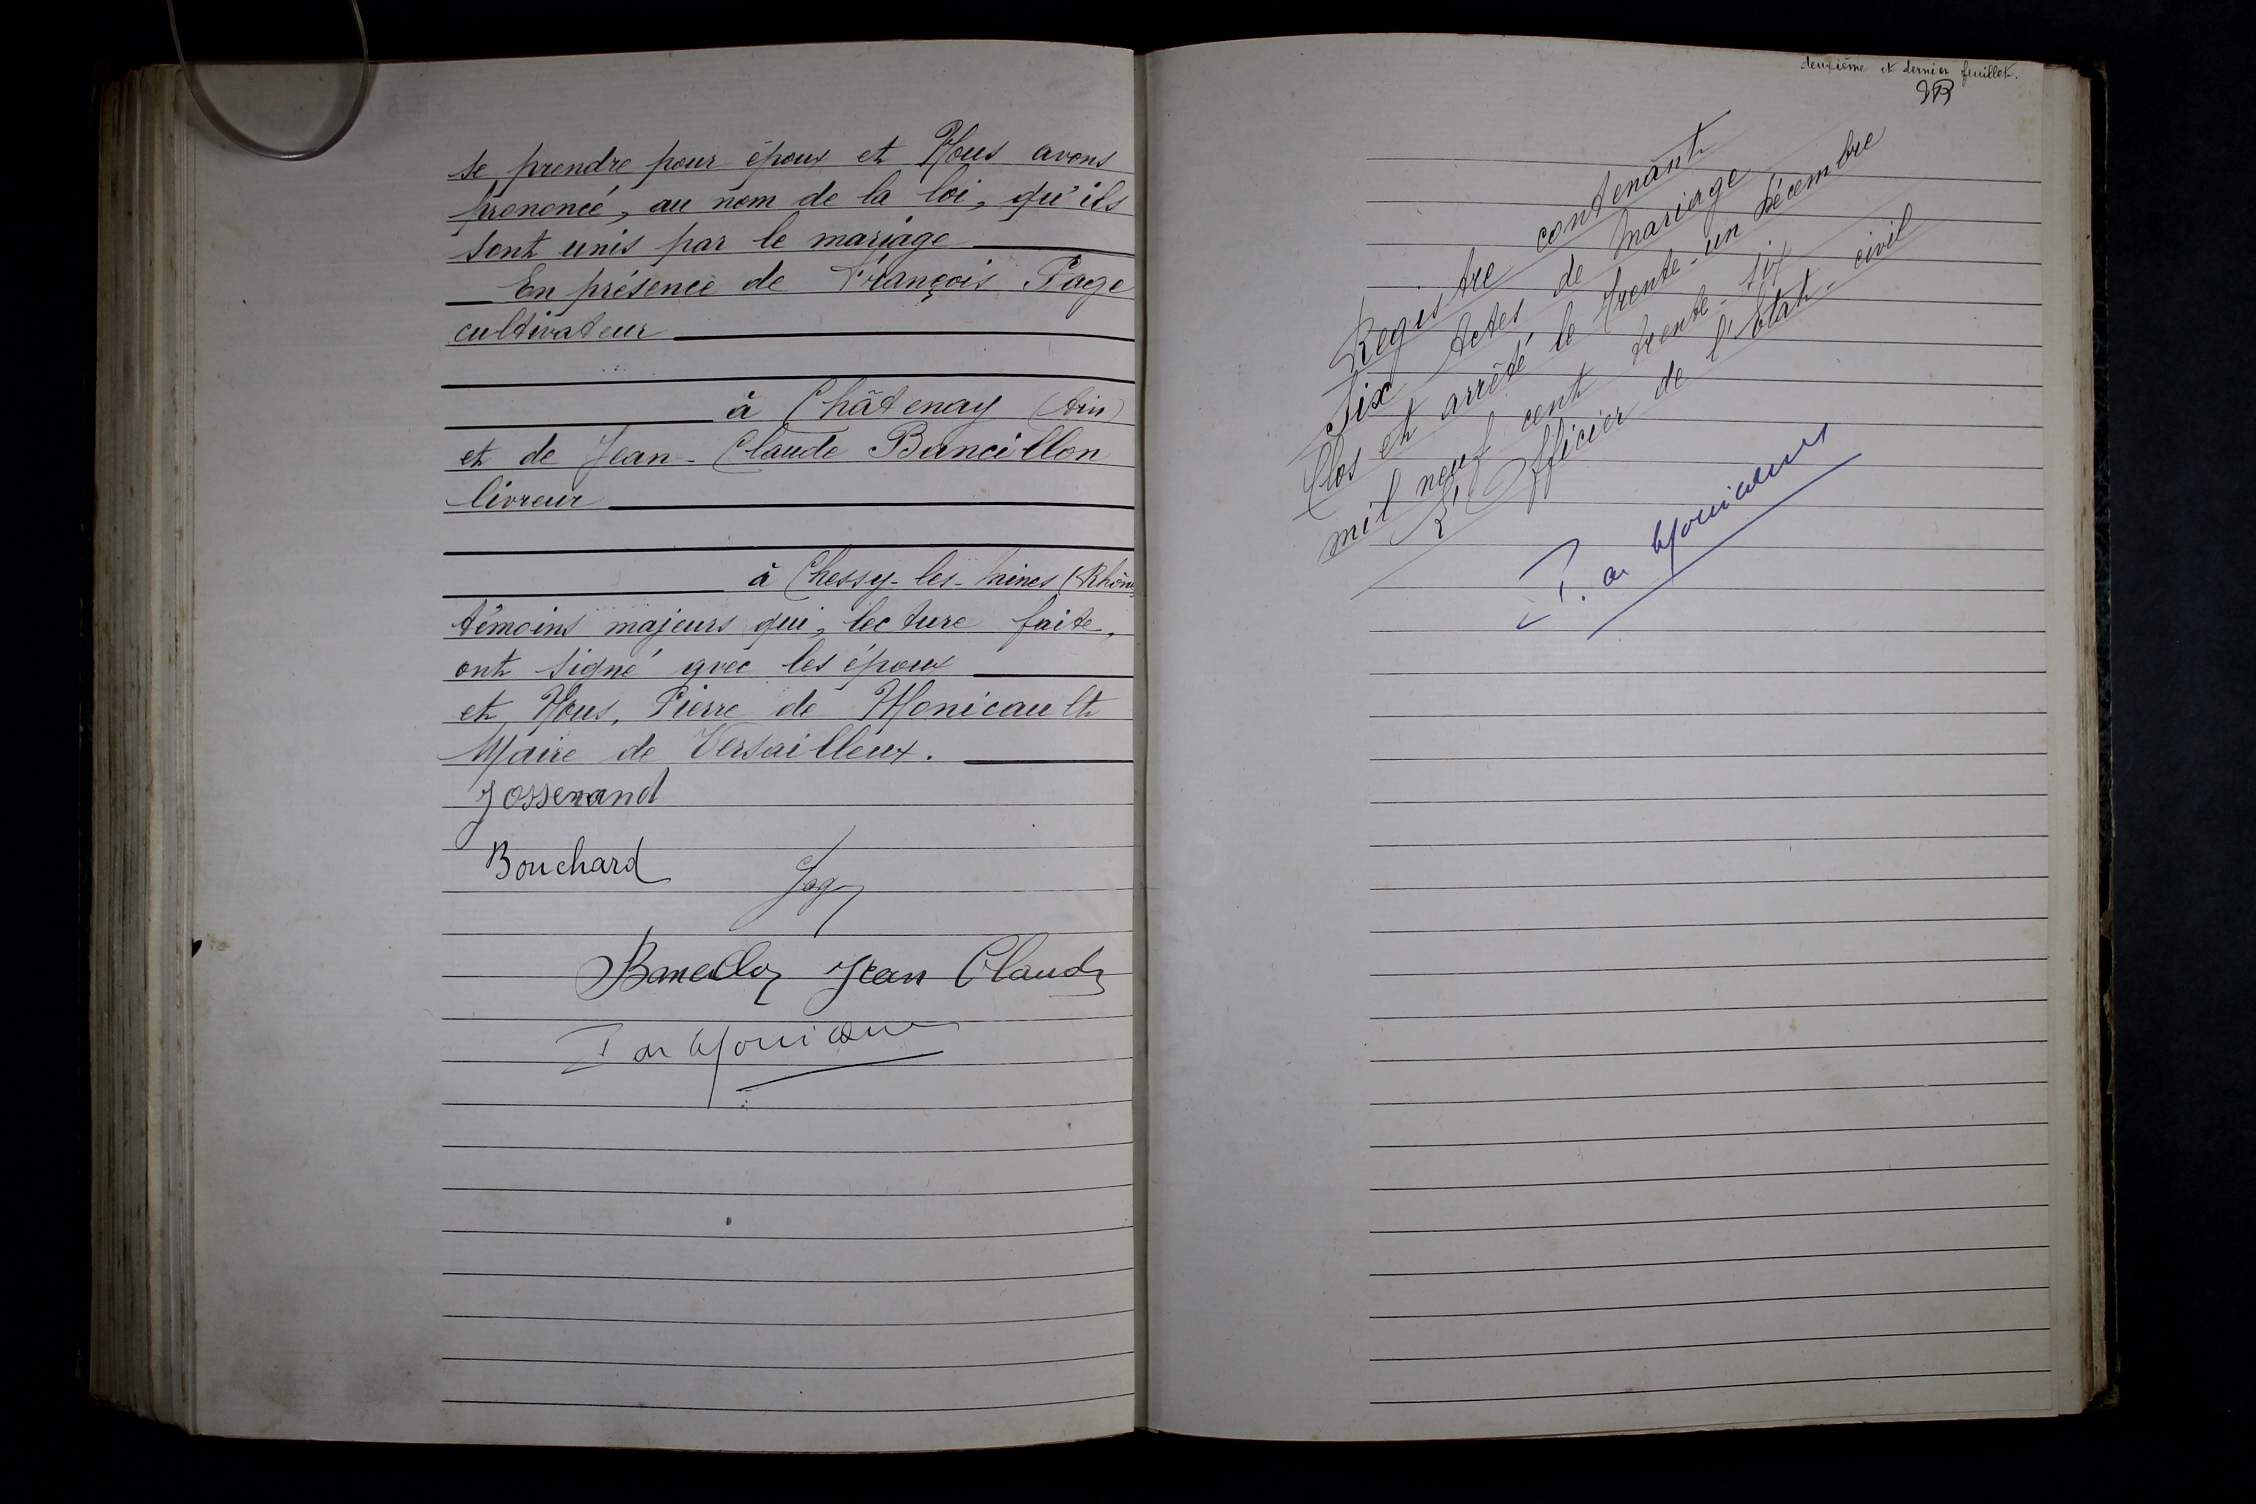 se prendre pour époux et Nous avons
prononcé, au nom de la loi, qu'ils
sont unis par le mariage
En présence de François Page
cultivateur
à Châtenay (Ain)
et de Jean-Claude Bancillon
livreur
à Chessy-les-Mines (Rhône
témoins majeurs qui, lecture faite,
ont signé avec les époux
et Nous, Pierre de Monicault
Maire de Versailleux.
Josserand
Bouchard
Bancillon Jean Claude
P de Monicault
deuxième et dernier feuillet.
Registre contenant
Six Actes de Mariage
Clos et arrêté le trente-un Décembre
mil neuf cent trente-six
L'Officier de l'Etat-civil
P. de Monicault